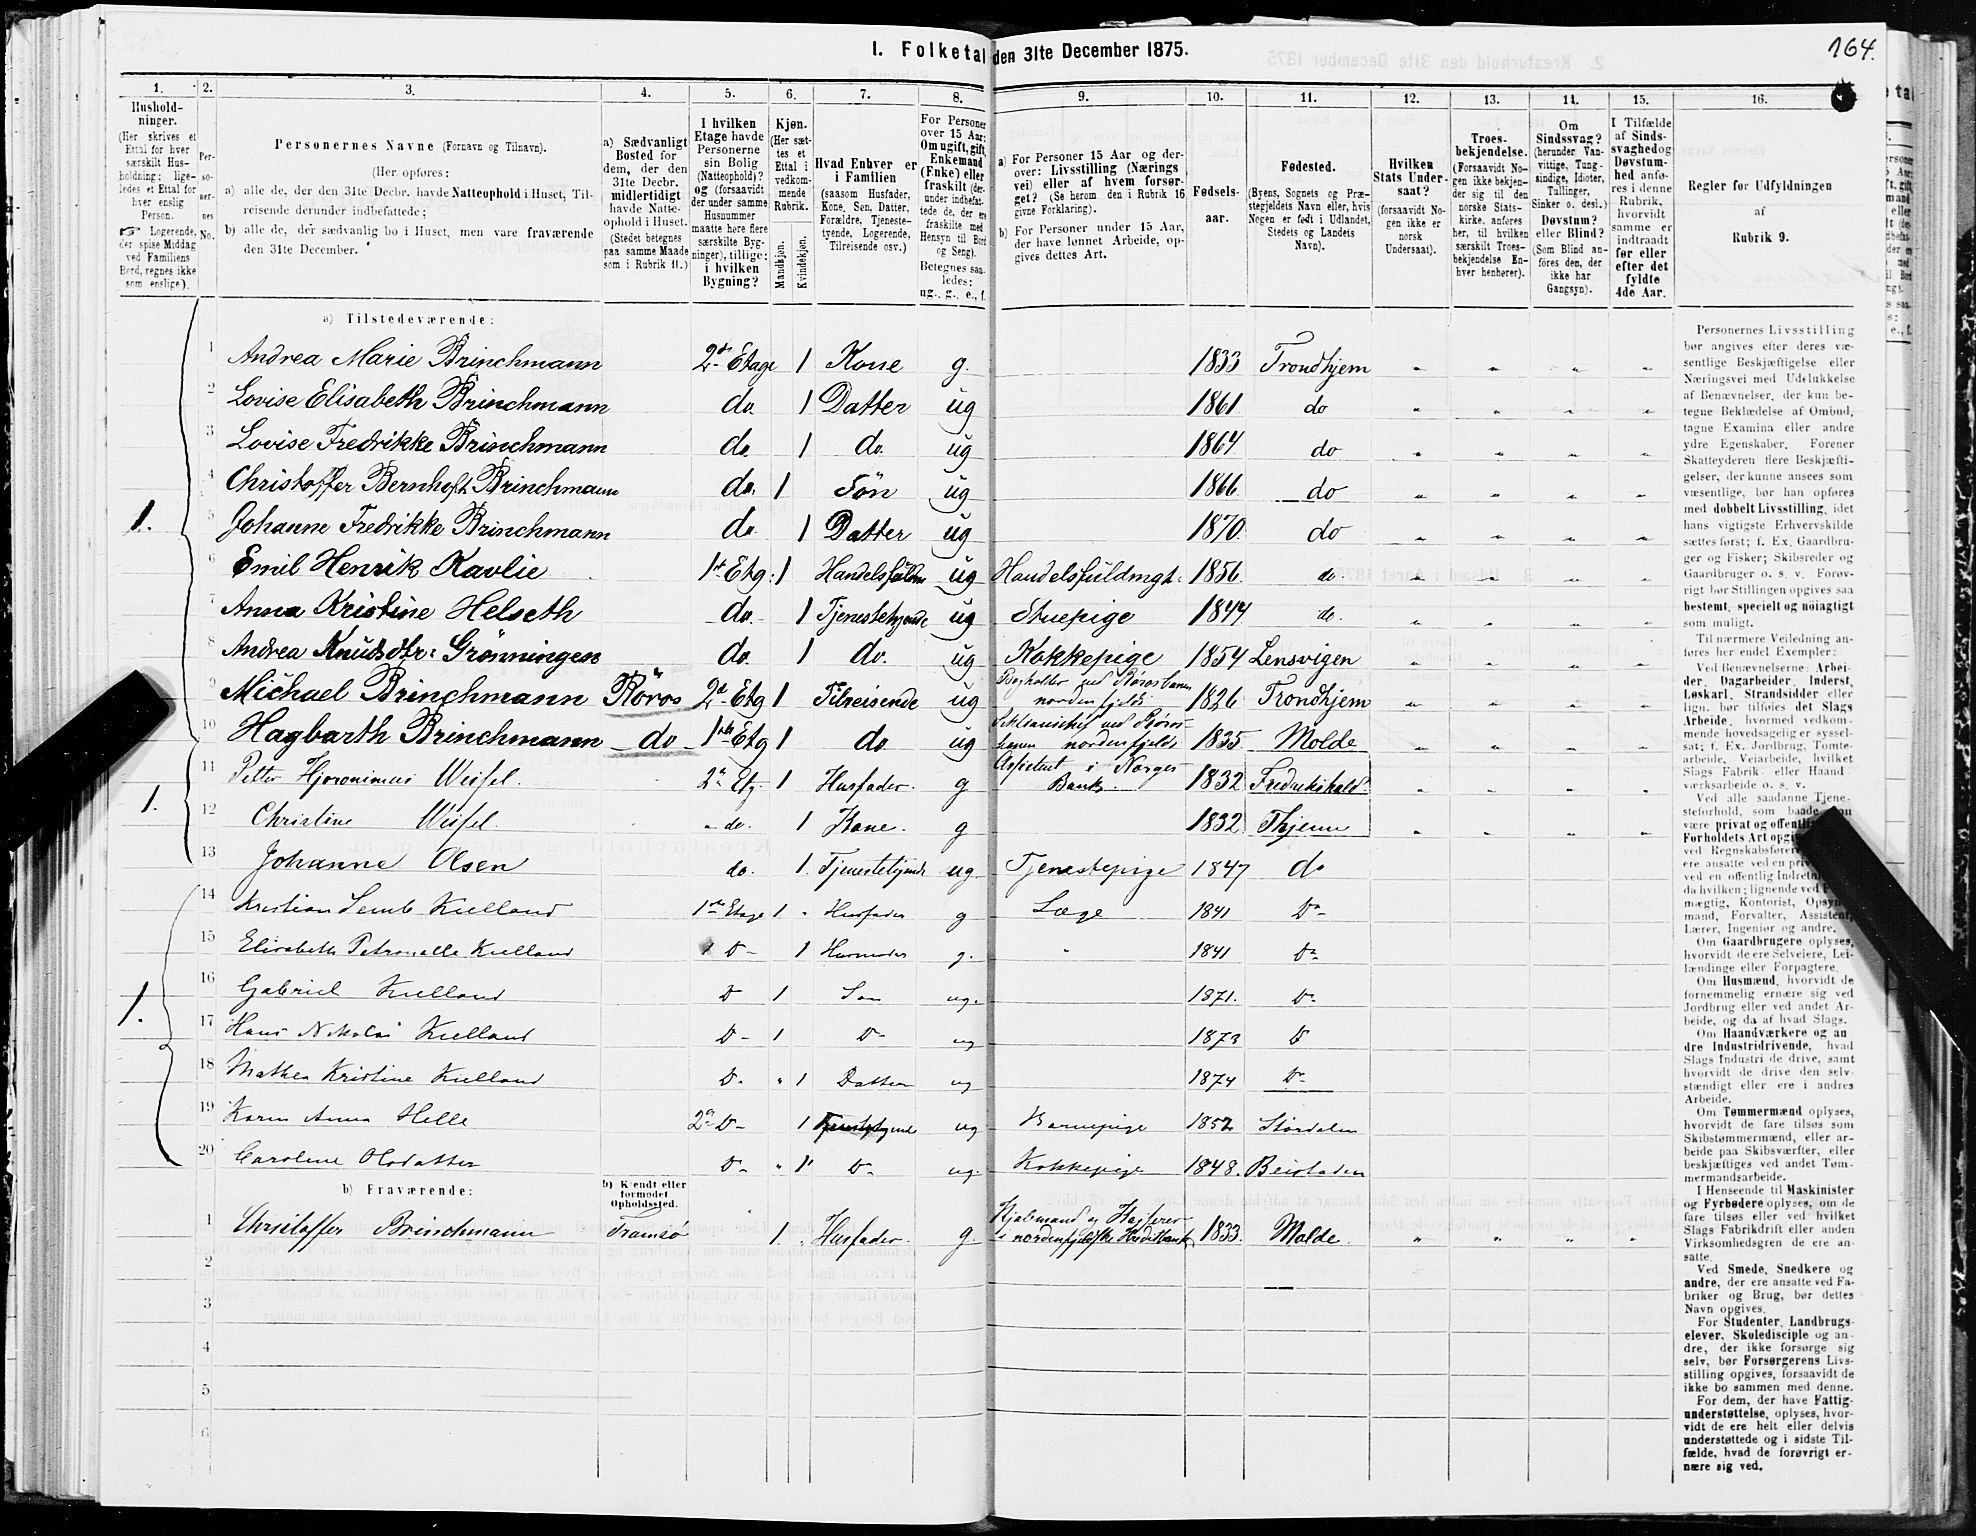 I. Folketal den 31te December 1875.
164.
1. 2. 3. 4. 5. 6. 7. 8. 9. 10. 11. 12. 13. 14. 15. 16.
Hushold-
ninger.
(Her skrives et
Ettal for hver
særskilt Hus-
holdning; lige-
ledes et Ettal for
hver enslig
Person.
☞ Logerende,
der spise Middag
ved Familiens
Bord, regnes ikke
som enslige).
Per-
so-
ner-
nes
No.
Personernes Navne (Fornavn og Tilnavn).
(Her opføres:
a) alle de, der den 31te Decbr. havde Natteophold i Huset, Til-
reisende derunder indbefattede;
b) alle de, der sædvanlig bo i Huset, men vare fraværende
den 31te December.
a) Sædvanligt
Bosted for
dem, der den
31te Decbr.
midlertidigt
havde Natte-
ophold i Huset.
(Stedet betegnes
paa samme Maade
som i Rubrik 11.)
I hvilken
Etage havde
Personerne
sin Bolig
(Natteophold)?
og (forsaavidt
der under samme
Husnummer
maatte høre flere
særskilte Byg-
ninger), tillige:
i hvilken
Bygning?
Kjøn.
(Her sæt-
tes et
Ettal i
vedkom-
mende
Rubrik.
Mandkjøn.
Kvindekjøn.
Hvad Enhver er
i Familien
(saasom Husfader,
Kone, Søn, Datter,
Forældre, Tjeneste-
tyende, Logerende,
Tilreisende osv.)
For Personer
over 15 Aar:
Om ugift, gift,
Enkemand
(Enke) eller
fraskilt (der-
under indbefat-
tede de, der ere
fraskilte med
Hensyn til Bord
og Seng).
Betegnes saa-
ledes:
ug., g., e., f.
a) For Personer 15 Aar og der-
over: Livsstilling (Nærings
vei) eller af hvem forsør-
get? (Se herom den i Rubrik 16
givne Forklaring).
b) For Personer under 15 Aar,
der have lønnet Arbeide, op-
gives dettes Art.
Fødsels-
aar.
Fødested.
(Byens, Sognets og Præ-
stegjeldets Navn eller, hvis
Nogen er født i Udlandet,
Stedets og Landets
Navn).
Hvilken
Stats Under-
saat?
(forsaavidt No-
gen ikke er
norsk
Undersaat).
Troes-
bekjendelse.
(Forsaavidt No-
gen ikke bekjen-
der sig til den
norske Stats-
kirke, anføres
her, til hvilken
særskilt Troes-
bekjendelse En-
hver henhører).
Om
Sindssvag?
(herunder Van-
vittige, Tung-
sindige, Idioter,
Tullinger,
Sinker o. desl.)
Døvstum?
eller Blind?
(Som Blind an-
føres den, der
ikke har
Gangsyn).
I Tilfælde
af Sinds-
svaghed og
Døvstum-
hed anfø-
res i denne
Rubrik,
hvorvidt
samme er
indtraadt
før eller
efter det
fyldte
4de Aar.
Regler for Udfyldningen
af
Rubrik 9.
a) Tilstedeværende:
1 Andrea Marie Brinchmann 2den Etage 1 Kone g. 1833 Trondhjem " " " "
2 Lovise Elisabeth Brinchmann do. 1 Datter ug 1861 do " " " "
3 Lovise Fredrikke Brinchmann do. 1 do. ug 1864 do " " " "
4 Christoffer Bernhoft Brinchmann do. 1 Søn ug 1866 do " " " "
1. 5 Johanne Fredrikke Brinchmann do. 1 Datter ug 1870 do " " " "
6 Emil Henrik Kavlie 1ste Etg: 1 Handelsfuldm ug Handelsfuldmgt: 1856 do. " " " "
7 Anna Kristine Helseth do. 1 Tjenestetyende ug Stuepige 1844 do. " " " "
8 Andrea Knudsdtr: Grönningen do. 1 do. ug Kokkepige 1854 Lensvigen " " " "
9 Michael Brinchmann Röros 2d Etg 1 Tilreisende ug Bogholder ved Rørosbanen
norden fjelds 1826 Trondhjem " " " "
10 Hagbarth Brinchmann do 1ste Etg 1 do ug ved Röros-
banen nordenfjelds 1835 Molde " " " "
1. 11 Petter Hjeronimus 2n Etg. 1 Husfader. g Assistent i Norges
Bank. 1832 Fredrikshald " " " "
12 Christine " do. 1 Kone. g 1832 Thjem " " " "
13 Johanne Olsen do. 1. Tjenestetyende ug. Tjenestepige 1847 do
14 Kristian Lemb Kielland 1ste Etage 1 " Husfader g Læge 1841 Do
15 Elisabeth Petronelle Kielland Do 1 Husmoder g. " 1841 Do
1. 16 Gabriel Kielland Do 1 Søn ug. 1871. Do
17 Hans Nikolai Kielland Do 1 Do ug 1873 Do
18 Mathea Kristine Kielland Do " 1 Datter ug 1874 Do
19 Karen Anna Helle 2n Do 1 Tjenestetyende ug Barnepige 1852 Stördalen
20 Caroline Olsdatter Do " 1 Do ug. Kokkepige 1848. Beistaden
b) Fraværende:
b) Kjendt eller
formodet
Opholdssted.
1 Christoffer Brinchmann Tromsø 1 " Husfader. g. Kjøbmand og Kasserer
i nordenfjeldske Kreditbank 1833. Molde. " " " "
2
3
4
5
6
Personernes Livsstilling
bør angives efter deres væ-
sentlige Beskjæftigelse eller
Næringsvei med Udelukkelse
af Benævnelser, der kun be-
tegne Beklædelse af Ombud,
tagne Examina eller andre
ydre Egenskaber. Forener
Skatteyderen flere Beskjæfti-
gelser, der kunne ansees som
væsentlige, bør han opføres
med dobbelt Livsstilling, idet
hans vigtigste Erhvervskilde
sættes først; f. Ex. Gaardbru-
ger og Fisker; Skibsreder og
Gaardbruger o. s. v. Forøv-
rigt bør Stillingen opgives saa
bestemt, specielt og nøiagtigt
som muligt.
Til nærmere Veiledning an-
føres her endel Exempler:
Ved Benævnelserne: Arbei-
der, Dagarbeider, Inderst,
Løskarl, Strandsidder eller
lign. bør tilføies det Slags
Arbeide, hvormed vedkom-
mende hovedsagelig er syssel-
sat; f. Ex. Jordbrug, Tomte-
arbeide, Veiarbeide, hvilket
Slags Fabrik- eller Haand-
værksarbeide o. s. v.
Ved alle saadanne Tjene-
steforhold, som baade
være privat og offentlig
Forholdets Art
ved Regnskabsførere
ere ansatte ved en
ved en offentlig Indretn
da hvilken; lignende ved
mægtig, Kontorist, Opsyn
mand, Forvalter, Assistent,
Lærer, Ingeniør og andre.
Om Gaardbrugere oplyses,
hvorvidt de ere Selveiere, Lei-
lændinge eller Forpagtere.
Om Husmænd, hvorvidt de
fornemmelig ernære sig ved
Jordbrug eller ved andet Ar-
beide, og da af hvad Slags.
Om Haandværkere og an
dre Industridrivende, hvad
Slags Industri de drive, samt
hvorvidt de drive den selv-
stændigt eller ere i andres
Arbeide.
Om Tømmermænd oplyses,
hvorvidt de fare tilsøs som
Skibstømmermænd, eller ar-
beide paa Skibsværfter, eller
beskjæftiges ved andet Tøm-
mermandsarbeide.
I Henseende til Maskinister
og Fyrbødere oplyses, om de
fare tilsøs eller ved hvilket
Slags Fabrikdrift eller anden
Virksomhedsgren de ere an-
satte.
Ved Smede, Snedkere og
andre, der ere ansatte ved Fa-
briker og Brug, bør dettes
Navn opgives.
For Studenter, Landbrugs-
elever, Skoledisciple og an-
dre, der ikke forsørge sig
selv, bør Forsørgerens Livs-
stilling opgives, forsaavidt de
ikke bo sammen med denne.
For dem, der have Fattig-
understøttelse, oplyses, hvor-
vidt de ere helt eller delvis
understøttede og i sidste Til-
fælde, hvad de forøvrigt er-
nære sig ved.